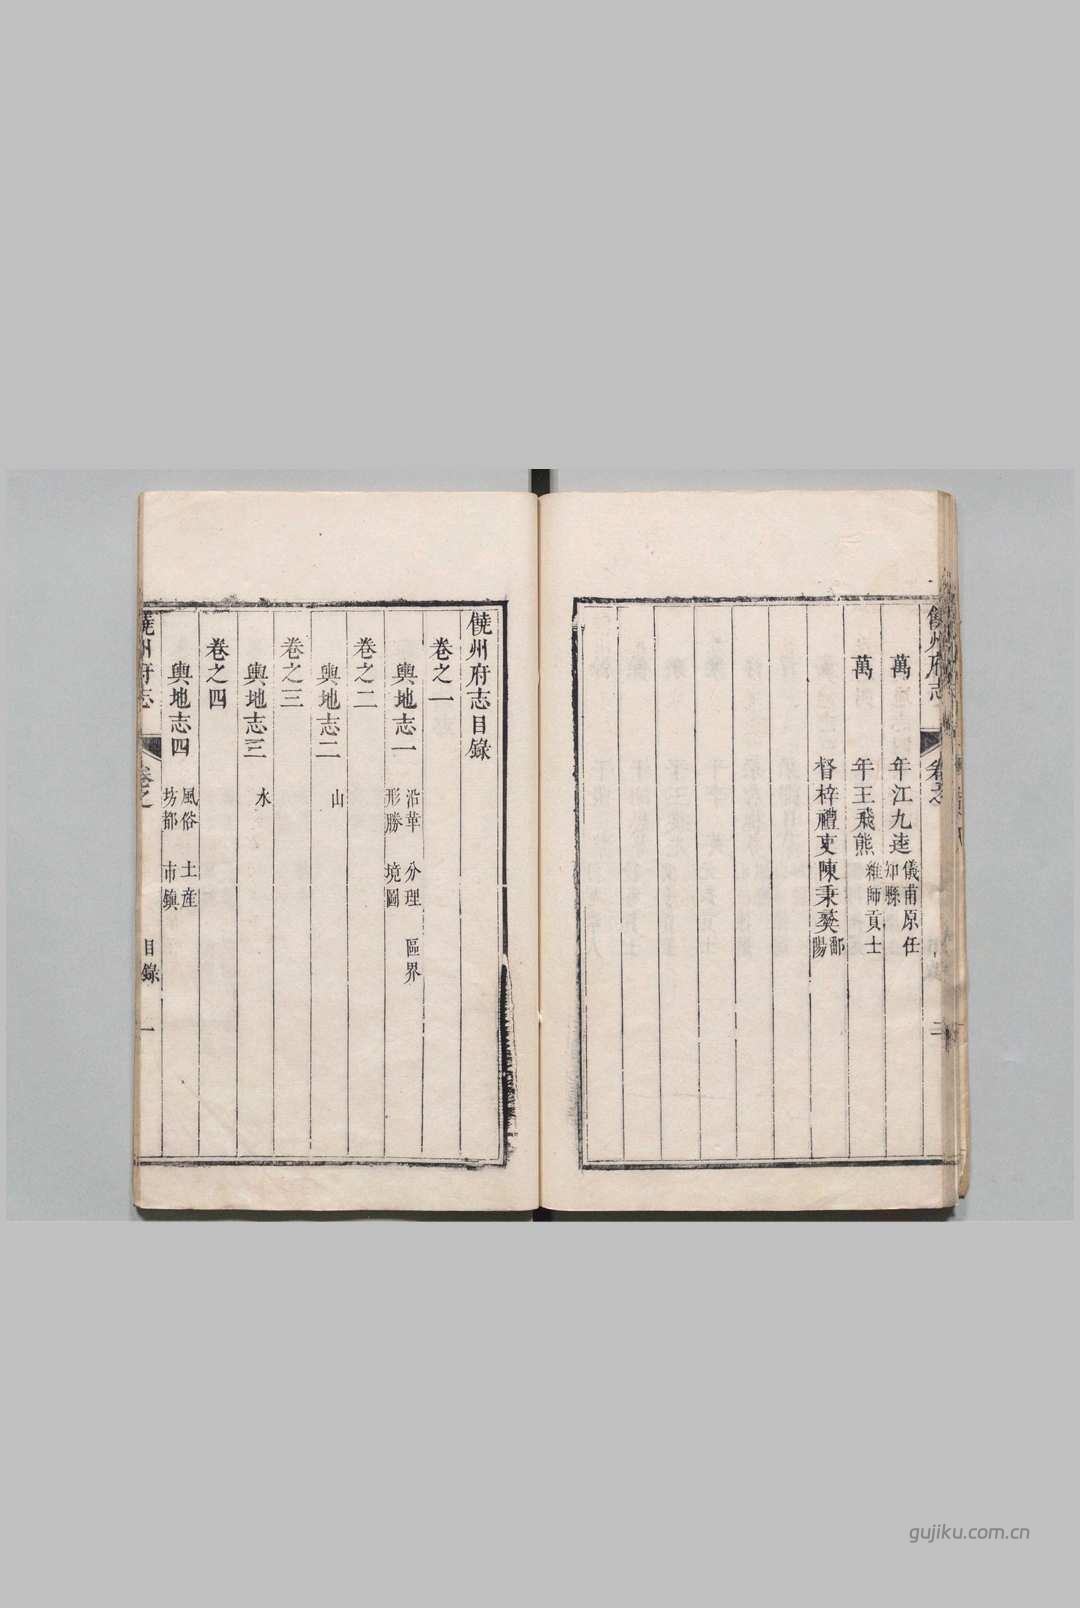 饒州府志
萬　年江九逵儀甫原任知縣
萬　年王飛熊維師貢士
督梓禮吏陳秉葵鄱陽
三
饒州府志目錄
卷之一
輿地志一　沿革　分理　區界　形勝　境圖
卷之二
輿地志二　山
卷之三
輿地志三　水
卷之四
輿地志四　風俗　土産　坊都　市鎮
饒州府志　卷之　目錄　一
gujiku.com.cn